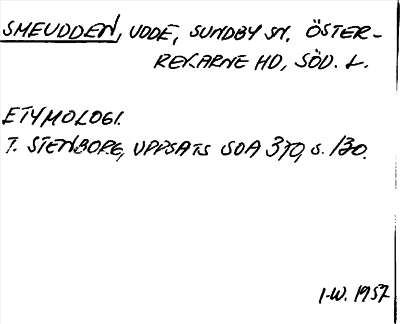 SMEUDDEN, UDDE, SUNDBY SN. ÖSTER-
REKARNE HD, SÖD. L.
ETYMOLOGI.
T. STENBORG, UPPSATS SOA 370, S. 130.
I-W. 1957